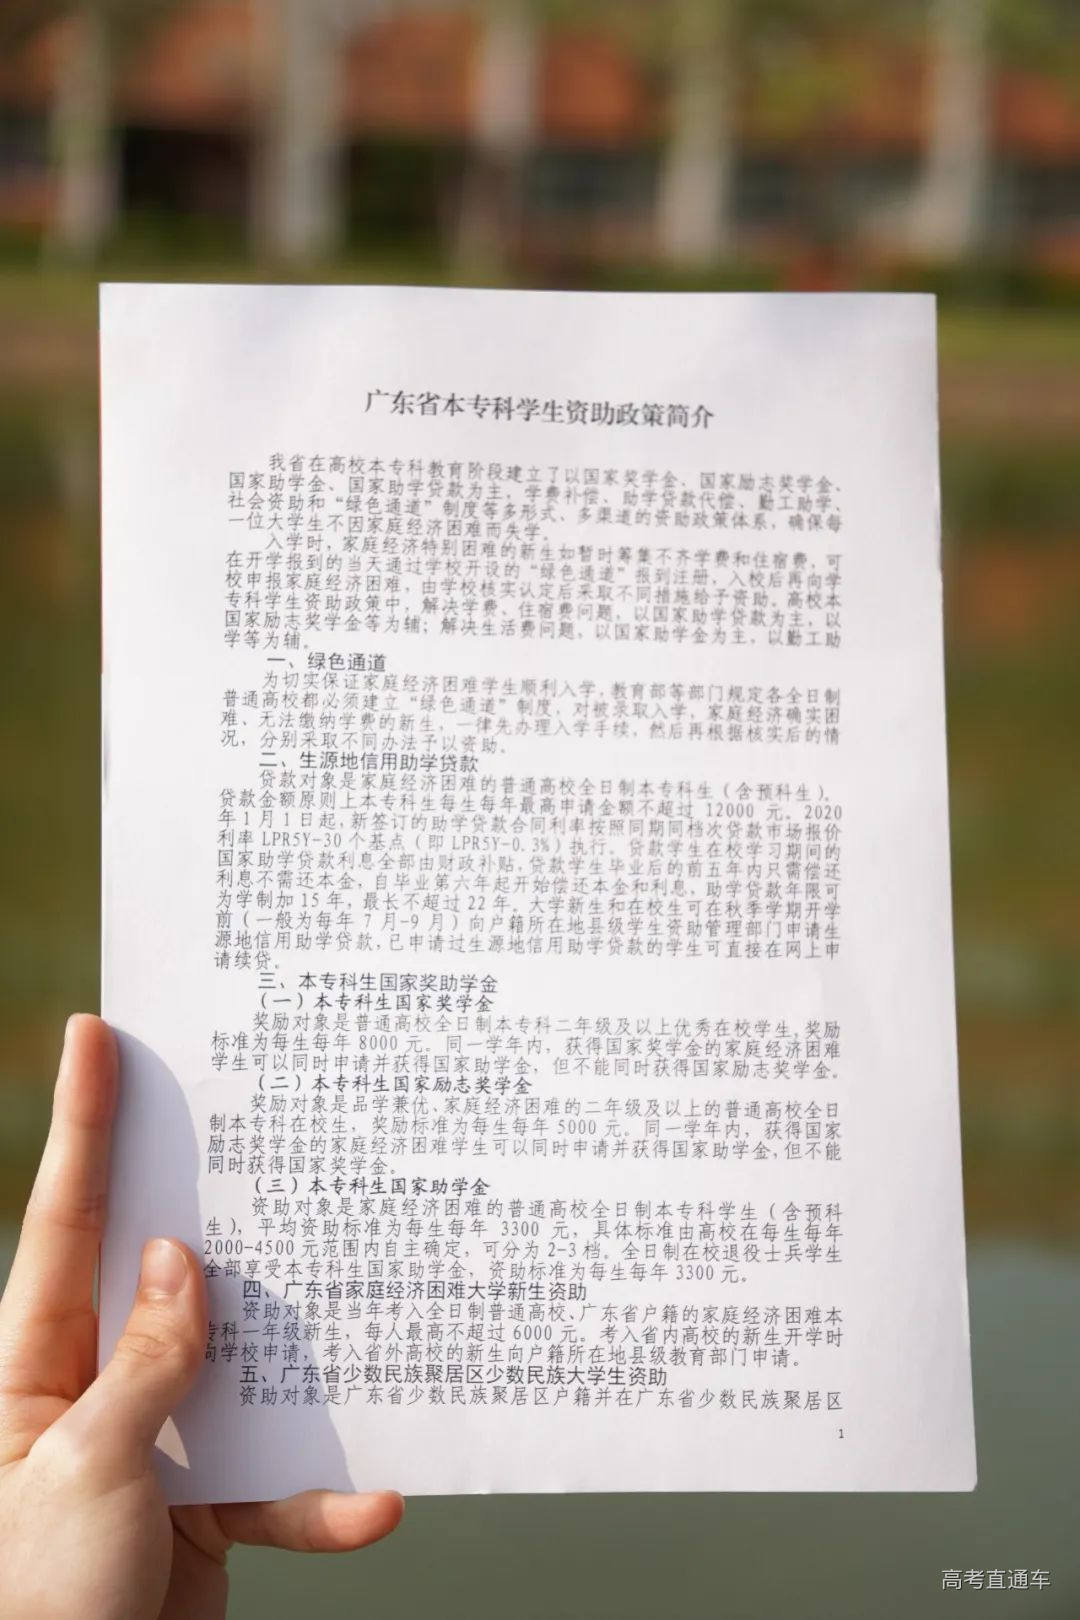 广东省本专科学生资助政策简介
我省在高校本专科教育阶段建立了以国家奖学金、国家励志奖学金、
国家助学金、国家助学贷款为主，学费补偿、助学贷款代偿、勤工助学、
社会资助和“绿色通道”制度等多形式、多渠道的资助政策体系，确保每
一位大学生不因家庭经济困难而失学。
入学时，家庭经济特别困难的新生如暂时筹集不齐学费和住宿费，可
在开学报到的当天通过学校开设的“绿色通道”报到注册，入校后再向学
校申报家庭经济困难，由学校核实认定后采取不同措施给予资助。高校本
专科学生资助政策中，解决学费、住宿费问题，以国家助学贷款为主，以
国家励志奖学金等为辅；解决生活费问题，以国家助学金为主，以勤工助
学等为辅。
一、绿色通道
为切实保证家庭经济困难学生顺利入学，教育部等部门规定各全日制
普通高校都必须建立“绿色通道”制度，对被录取入学，家庭经济确实困
难、无法缴纳学费的新生，一律先办理入学手续，然后再根据核实后的情
况，分别采取不同办法予以资助。
二、生源地信用助学贷款
贷款对象是家庭经济困难的普通高校全日制本专科生（含预科生）。
贷款金额原则上本专科生每生每年最高申请金额不超过 12000 元。2020
年1月1日起，新签订的助学贷款合同利率按照同期同档次贷款市场报价
利率 LPR5Y-30 个基点（即 LPR5Y-0.3%）执行。贷款学生在校学习期间的
国家助学贷款利息全部由财政补贴，贷款学生毕业后的前五年内只需偿还
利息不需还本金，自毕业第六年起开始偿还本金和利息，助学贷款年限可
为学制加 15 年，最长不超过 22 年。大学新生和在校生可在秋季学期开学
前（一般为每年 7 月-9 月）向户籍所在地县级学生资助管理部门申请生
源地信用助学贷款，已申请过生源地信用助学贷款的学生可直接在网上申
请续贷。
三、本专科生国家奖助学金
（一）本专科生国家奖学金
奖励对象是普通高校全日制本专科二年级及以上优秀在校学生，奖励
标准为每生每年 8000 元。同一学年内，获得国家奖学金的家庭经济困难
学生可以同时申请并获得国家助学金，但不能同时获得国家励志奖学金。
（二）本专科生国家励志奖学金
奖励对象是品学兼优、家庭经济困难的二年级及以上的普通高校全日
制本专科在校生，奖励标准为每生每年 5000 元。同一学年内，获得国家
励志奖学金的家庭经济困难学生可以同时申请并获得国家助学金，但不能
同时获得国家奖学金。
（三）本专科生国家助学金
资助对象是家庭经济困难的普通高校全日制本专科学生（含预科
生），平均资助标准为每生每年 3300 元，具体标准由高校在每生每年
2000-4500 元范围内自主确定，可分为 2-3 档。全日制在校退役士兵学生
全部享受本专科生国家助学金，资助标准为每生每年 3300 元。
四、广东省家庭经济困难大学新生资助
资助对象是当年考入全日制普通高校、广东省户籍的家庭经济困难本
专科一年级新生，每人最高不超过 6000 元。考入省内高校的新生开学时
向学校申请，考入省外高校的新生向户籍所在地县级教育部门申请。
五、广东省少数民族聚居区少数民族大学生资助
资助对象是广东省少数民族聚居区户籍并在广东省少数民族聚居区
1
高考直通车